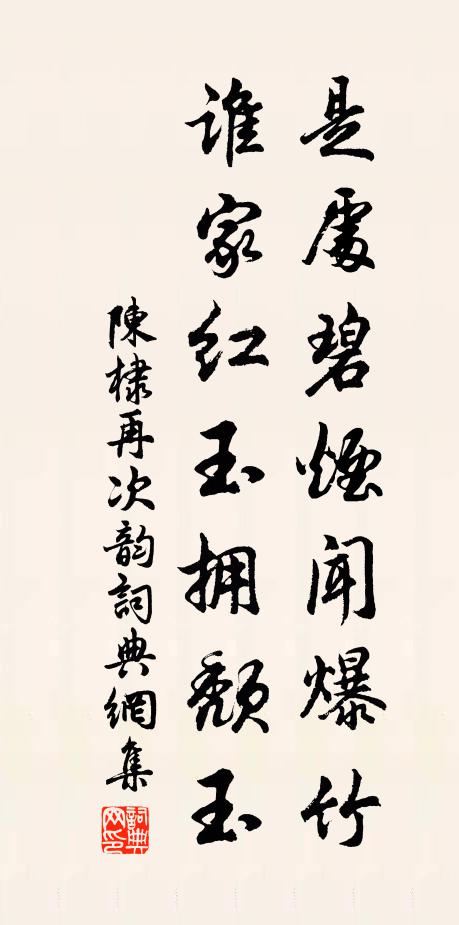 是處碧煙聞爆竹
誰家紅玉拥頹玉
陳棣再次韵詞典網集
詞典网印